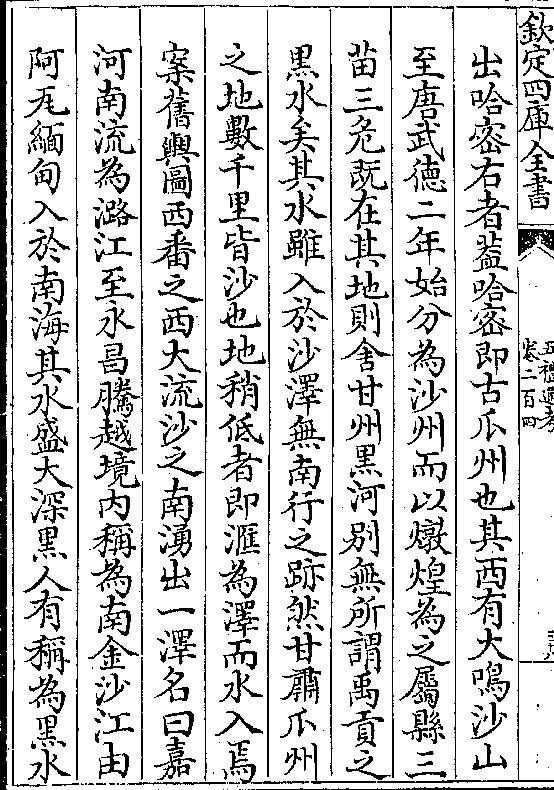 欽定四庫全書
五禮通考
卷二百四
出哈密右者葢哈密即古瓜州也其西有大鳴沙山
至唐武德二年始分為沙州而以燉煌為之屬縣三
苗三危既在其地則舍甘州黒河别無所謂禹貢之
黒水矣其水雖入於沙澤無南行之跡然甘肅瓜州
之地數千里皆沙也地稍低者即滙為澤而水入焉
案舊輿圖西番之西大流沙之南湧出一澤名曰嘉
河南流為潞江至永昌騰越境内稱為南金沙江由
阿瓦緬甸入於南海其水盛大深黒人有稱為黒水